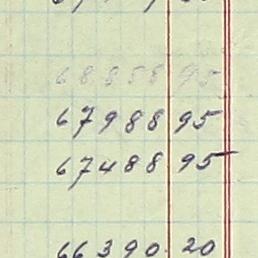 68858 95
67988 95
67488 95
66390 20